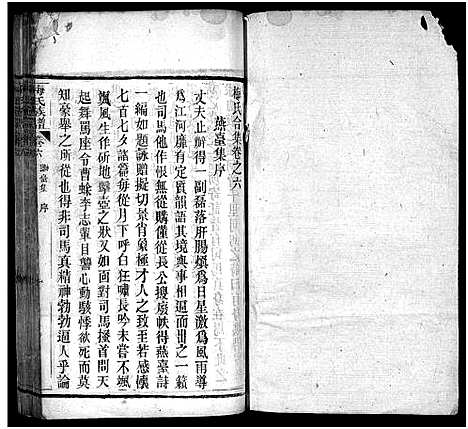 梅氏合集卷之六
燕臺集序
丈夫止辦得一副磊落肝腸熉為日星激為風雨導
為江河靡有定質韻語其境與事相逼而出之一籟
也司馬他作恨無從購僅從長公搜扇帙得燕臺詩
一編如題詠贈擬切景肖象極才人之致至若感懷
七百七夕諸篇每從月下呼白狂嘯長吟未嘗不颯
颯風生作斫地擊壺之狀又如面對司馬搔首問天
起舞罵座令曹蜍李志輩目瞢心動駭悸欲死而莫
知豪舉之所從也得非司馬真精神勃勃逼人乎論
梅氏族譜
卷六
燕臺集
序